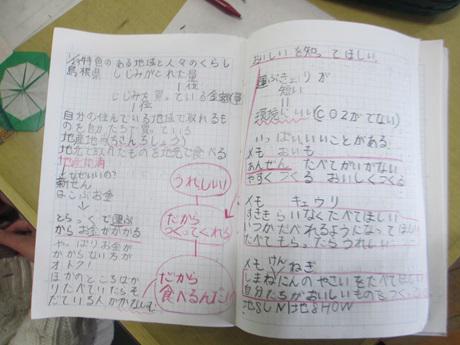 特色のある地域と人々のくらし
島根県 しじみがとれた量
1位
しじみを買っている金額
1位
自分の住んでいる地域で取れるも
のを自分たちで買っている
地産地消(ちさんちしょう)
地元で取れたものを地元で食べる
地産地消
となぜいいの?
新せん
はこぶお金
↓
とらっくで運ぶ
からお金がかかる
やっぱりお金が
かからない方が
オトク!
ほかのところばか
りたべていたらも
だている人が
うれしい!
だから
つくってくれる
だから
食べるんだ
おいしいを知ってほしい
運ぶきょりが
短い
=
環境にいい(CO2がでない)
いっぱいいいことがある
メモ おいも
あんぜん たべてがいがない
やすくつくる おいしくつくる
メモ キュウリ
すききらいなくたべてほしい
いつかたべれるようになってほしい
たべてもらったらうれしい
メモ ねぎ
しまねけんのやさいをたべてほしい
自分たちがおいしいものをつくる
地SUN地SHOW